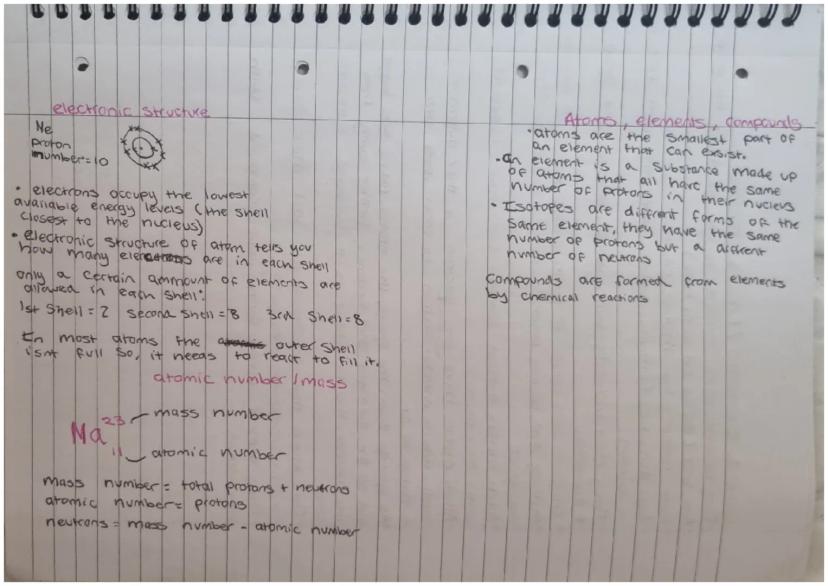 electronic structure
Ne
proton
number=10
• electrons occupy the lowest
available energy levels (the shell
closest to the nucleus)
• electronic structure of atom tells you
how many electrons are in each shell
only a certain ammount of elements are
allowed in each shell:
1st shell = 2 second shell = 8 3rd shell = 8
In most atoms the outer shell
isnt full so, it needs to react to fill it.
atomic number/mass
23 mass number
Na
11 atomic number
mass number = total protons + neutrons
atomic number = protons
neutrons = mass number - atomic number
Atoms, elements, compounds
• atoms are the smallest part of
an element that can exsist.
• an element is a substance made up
of atoms that all have the same
number of protons in their nucleus
• Isotopes are different forms of the
same element, they have the same
number of protons but a different
number of neutrons
compounds are formed from elements
by chemical reactions